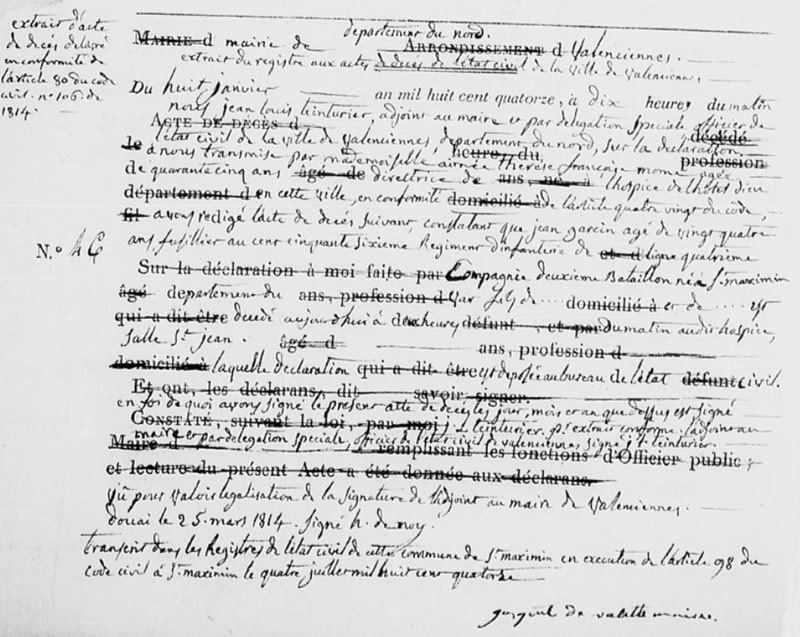 extrait d'acte
de décés delivré
en conformité de
l'article 80 du code
civil. n.° 106. de
1814.
departement du nord.
MAIRIE d mairie de ARRONDISSEMENT d Valenciennes.
extrait du registre aux actes de décés de l'état civil de la ville de valenciennes
Du huit janvier an mil huit cent quatorze, à dix heures du matin
nous jean louis teinturier, adjoint au maire et par delegation speciale officier de
ACTE DE DÉCÈS d décédé
l'état civil de la ville de valenciennes departement du nord, sur la declaration
le heure du profession
à nous transmise par mademoiselle aimée therèse françoise mome agée
de quarante cinq ans âgé de directrice de ans, né à l'hospice de l'hotel dieu
département d en cette ville, en conformité domicilié à de l'article quatre vingt du code,
fil avons redigé l'acte de decés suivant, constatant que jean garcin agé de vingt quatre
ans fusillier au cent cinquante sixieme Regiment d'infanterie de et d ligne quatrieme
N.° 46
Sur la déclaration à moi faite par Compagnie deuxieme Bataillon né à St. maximin
âgé departement du ans, profession d var fils de ... domicilié à et de .... est
qui a dit être decedé aujourd'hui à deux heures défunt , et par du matin audit hospice,
salle St. jean. âgé d ans, profession d
domicilié à laquelle declaration qui a dit être est deposée au bureau de l'état défunt civil.
Et ont, les déclarans, dit savoir signer.
en foi de quoi avons signé le present acte de decés les jour, mois et an que dessus est signé
CONSTATÉ, suivant la loi, par moi j. l. teinturier. pr. extrait conforme. l'adjoint au
maire et par delegation speciale, officier de l'état civil de valenciennes, signé j. l. teinturier.
Maire d remplissant les fonctions d'Officier public;
et lecture du présent Acte a été donnée aux déclarans.
vu pour valoir legalisation de la signature de l'adjoint au maire de Valenciennes.
douai le 25. mars 1814. signé h. de noy.
transcrit dans les Registres de l'état civil de cette commune de St. maximin en execution de l'article 98 du
code civil à St. maximin le quatre juillet mil huit cent quatorze
de valette